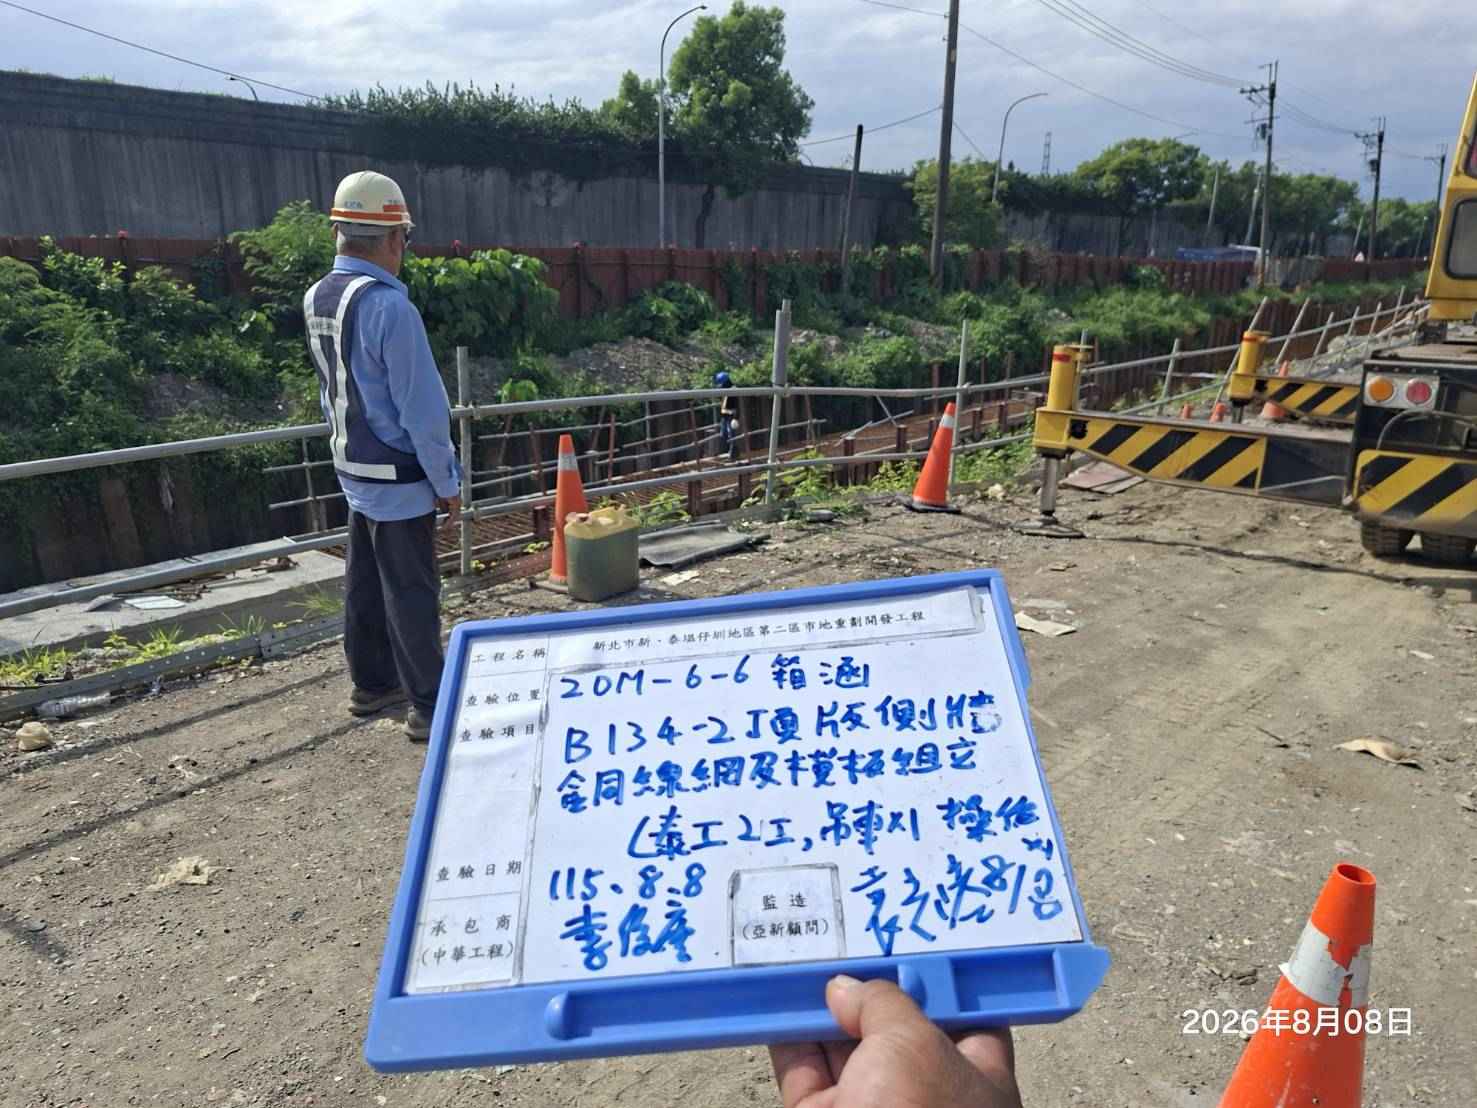 工程名稱 新北市新、泰塭仔圳地區第二區市地重劃開發工程
查驗位置 20M-6-6 箱涵
查驗項目 B134-2頂版側牆
鋼線網及模板組立
(泰工2工,吊車x1 操作x1
查驗日期 115.8.8
承包商
(中華工程)
監造
(亞新顧問)
8/8
2026年8月08日